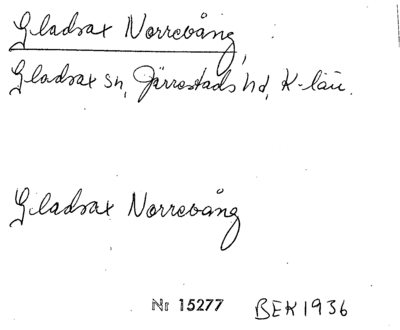 Gladsax Norrevång,
Gladsax sn, Järrestads hd, K-län.
Gladsax Norrevång
Nr 15277 BEK 1936